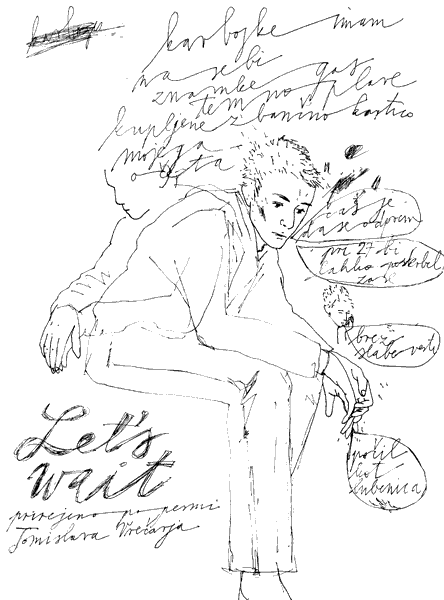 kavbojke imam
na sebi
znamke gas
temno plave
kupljene z bančno kartico
mojega
očeta
čas je
da se odprem
pri 27 bi
lahko poskrbil
zase
brez
slabe vesti
počil
kot
lubenica
Let's
wait
prirejeno po pesmi
Tomislava Vrečarja